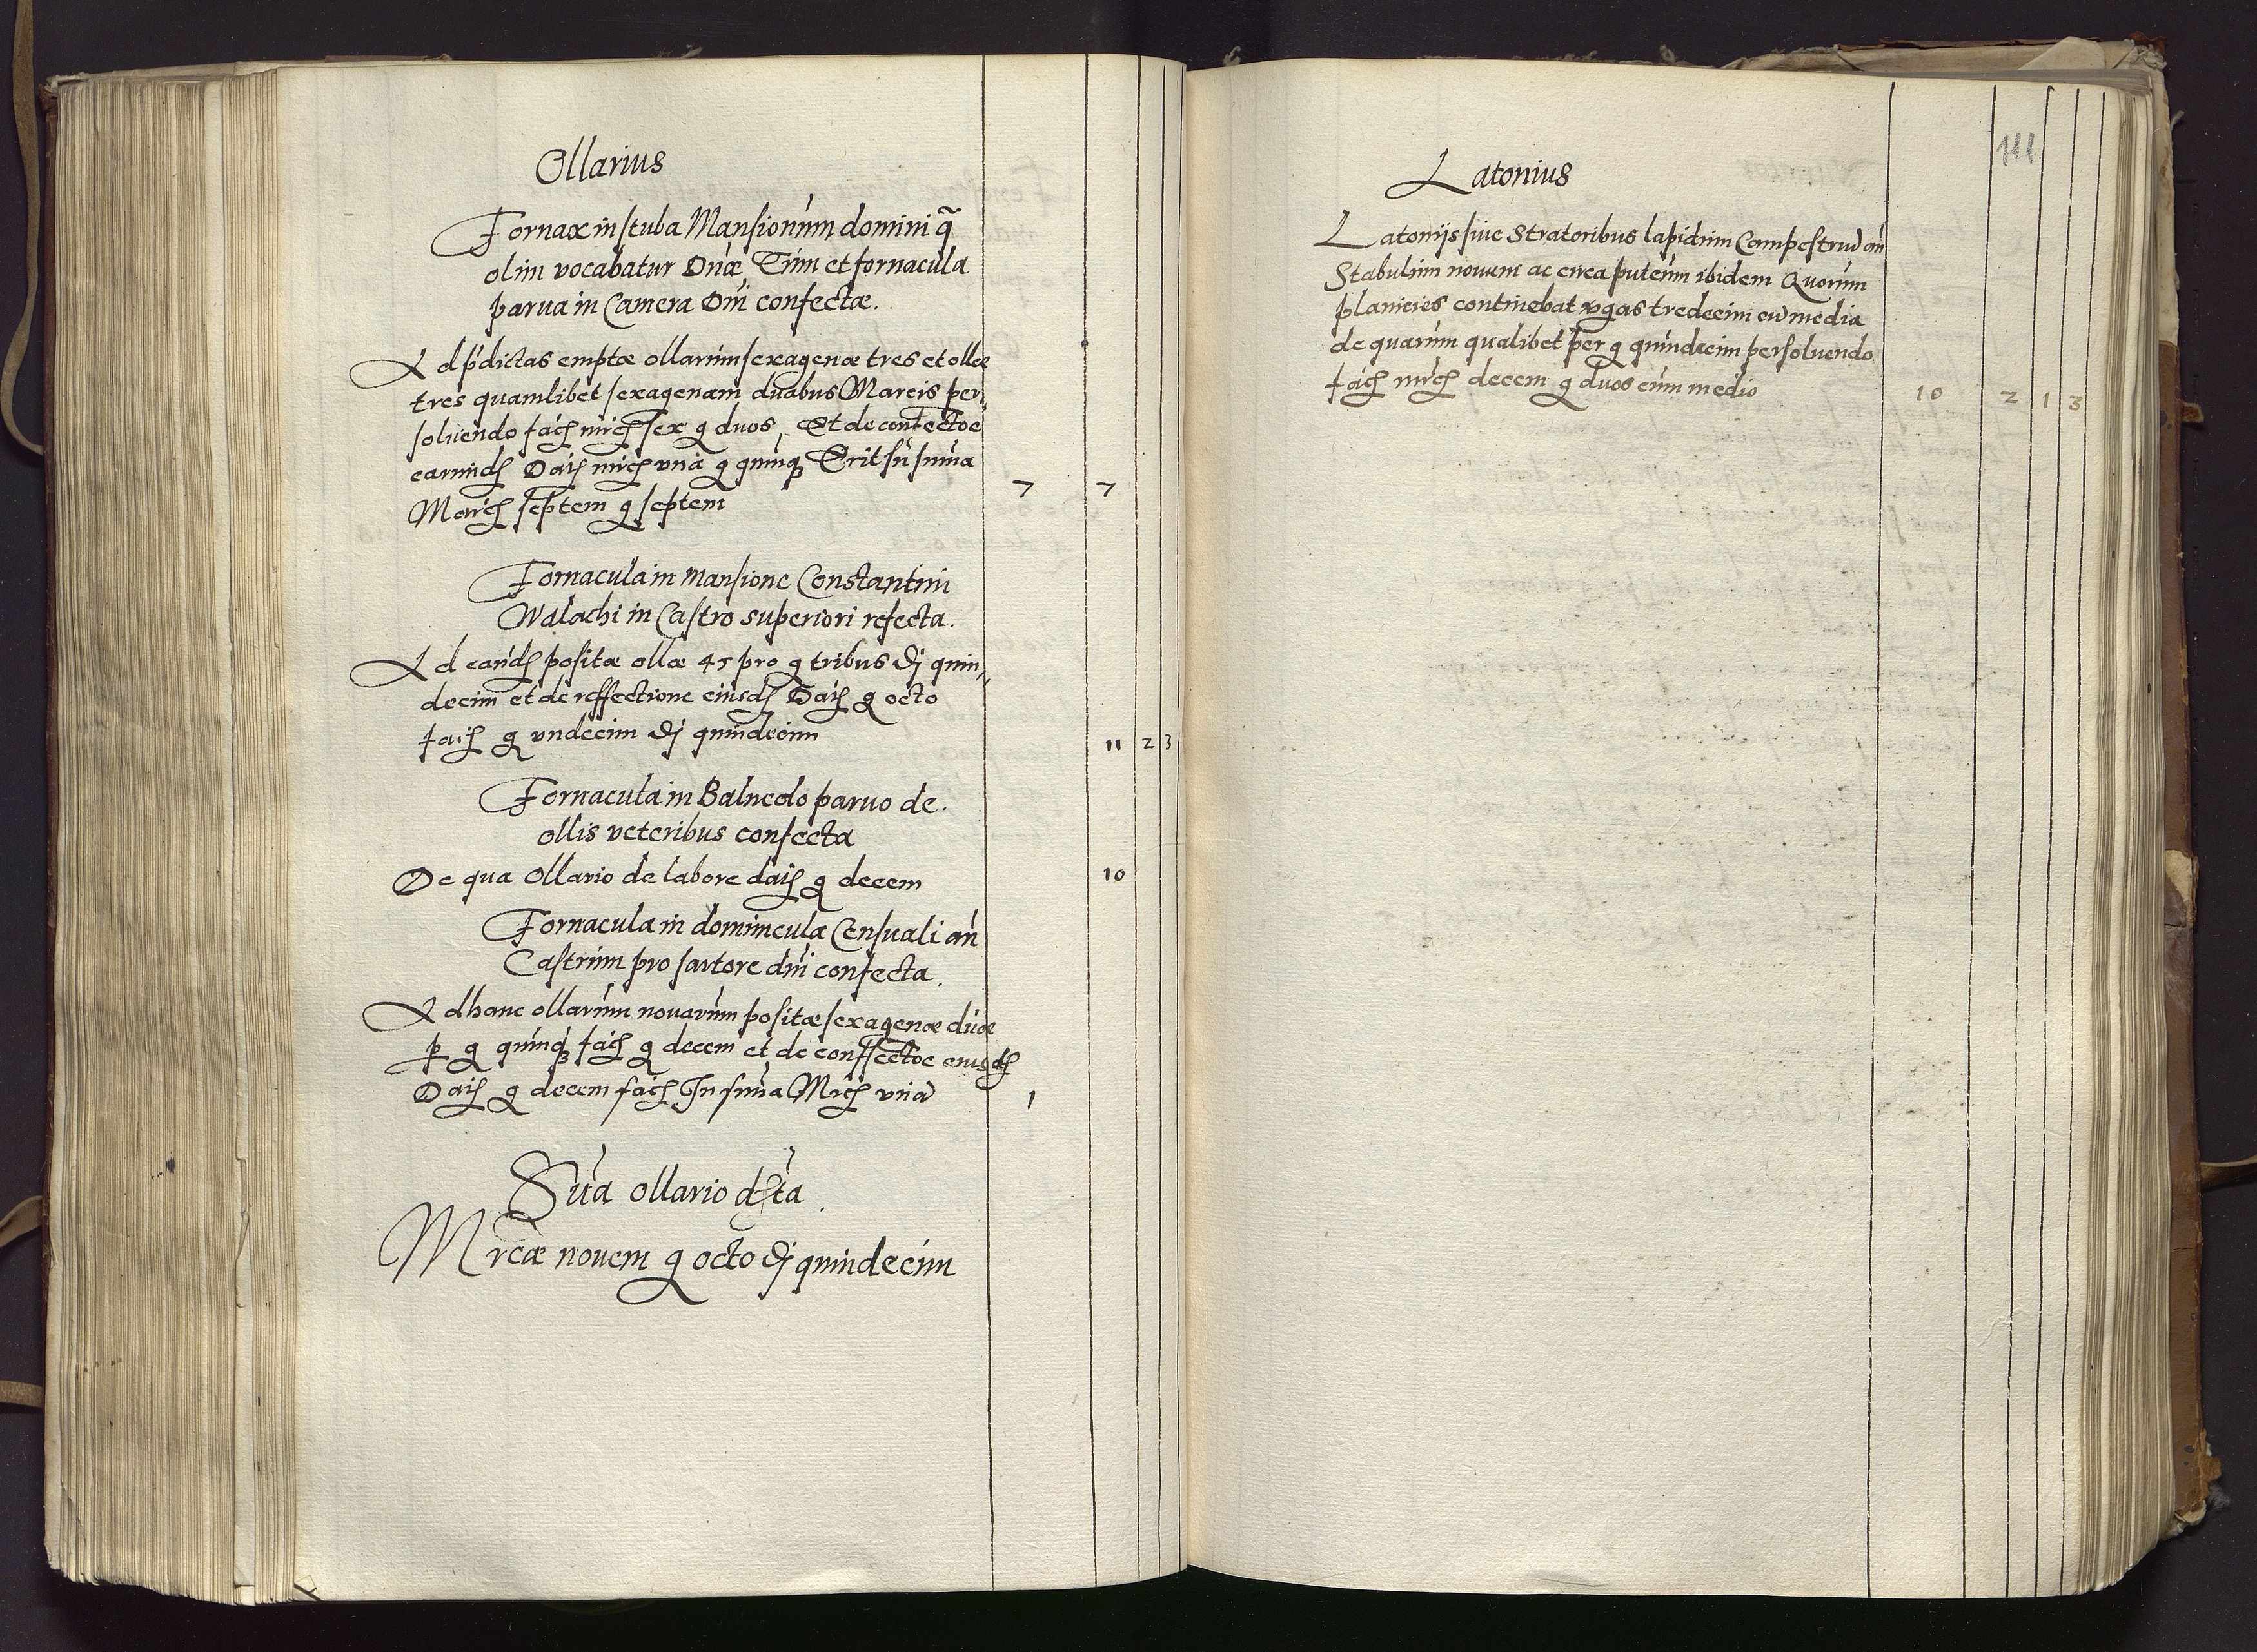 Ollarius
Fornax in stuba Mansionum domini q̃
olim vocabatur Dnæ Trim et fornacula
parua in Camera Dni confectæ.
Ad p̃dictas emptæ ollarum sexagenæ tres et ollæ 
tres quamlibet sexagenam duabus Marcis per,,
soluendo facit mrcs sex g duos. Et de confectoe
earundem Datis mrcs vna g quinq; Erit sic suma
Marcs septem g septem 7 7
Fornacula in mansione Constantini
Walachi in Castro superiori refecta.
Ad eandem positæ ollæ 45 pro g tribus dj quin,,
decim et de reffectione eiusdem Datis g octo
facit g vndecim dj quindecim 11 2 3
Fornacula in Balneolo paruo de.
ollis veteribus confecta
De qua Ollario de labore datis g decem 10
Fornacula in domuncula Censuali an
Castrum pro sartore dni confecta.
Ad hanc ollarum nouarum positæ sexagenæ duæ
p g quinq; facit g decem et de conffectoe eiusdem
Datis g decem facit In suma Mrcs vna 1
Sua ollario data
Mrcæ nouem g octo dj quindecim
111
Latonius
Latonijs siue Stratoribus lapidum Campestriu an
Stabulum nouum ac circa puteum ibidem Quorum
planicies continebat vgas tredecim cu media
de quarum qualibet per g quindecim persoluendo
facit mrcs decem g duos cum medio 10 2 1 3